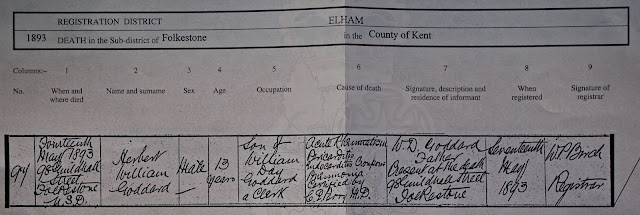 REGISTRATION DISTRICT ELHAM
1893 DEATH in the Sub-district of Folkestone in the County of Kent
Columns:- 1 2 3 4 5 6 7 8 9
No. When and where died Name and surname Sex Age Occupation Cause of death Signature, description and residence of informant When registered Signature of registrar
Fourteenth May 1893 98 Guildhall Street Folkestone U.S.D.
Herbert William Goddard
Male
13 years
Son of William Day Goddard a Clerk
Acute Rheumatism Pericarditis Endocarditis Croupous Pneumonia Certified by M.D.
W. D. Goddard Father Present at the death 98 Guildhall Street Folkestone
Seventeenth May 1893
W P Birch Registrar